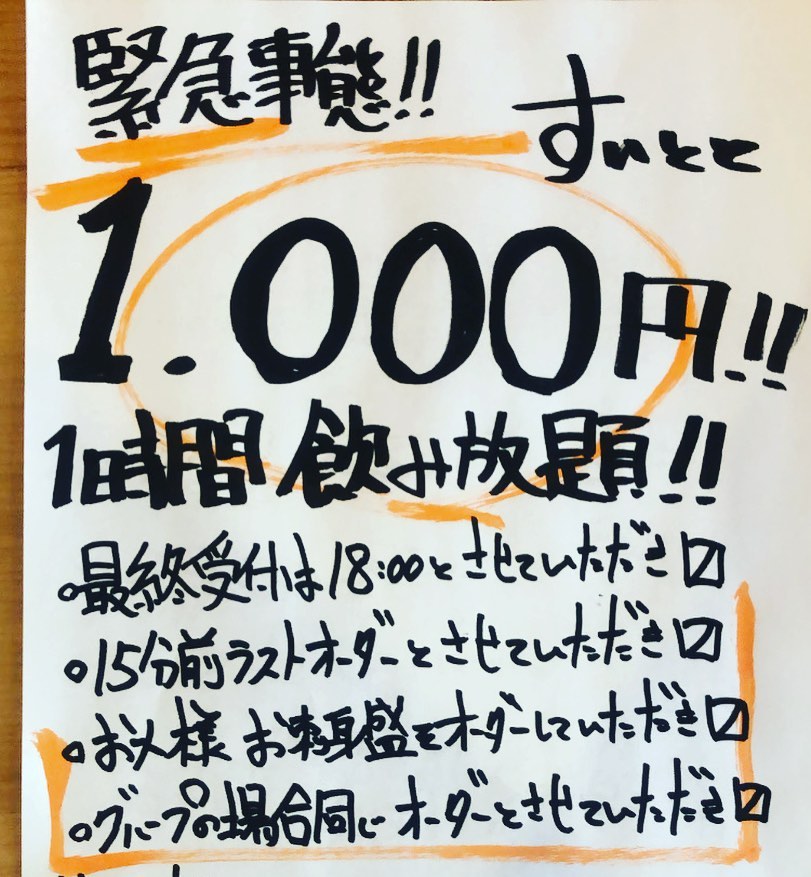 緊急事態!!
すいとと
1.000円!!
1時間 飲み放題!!
・最終受付は18:00とさせていただき〼
・15分前ラストオーダーとさせていただき〼
・お一人様 お刺身盛をオーダーしていただき〼
・グループの場合同じオーダーとさせていただき〼